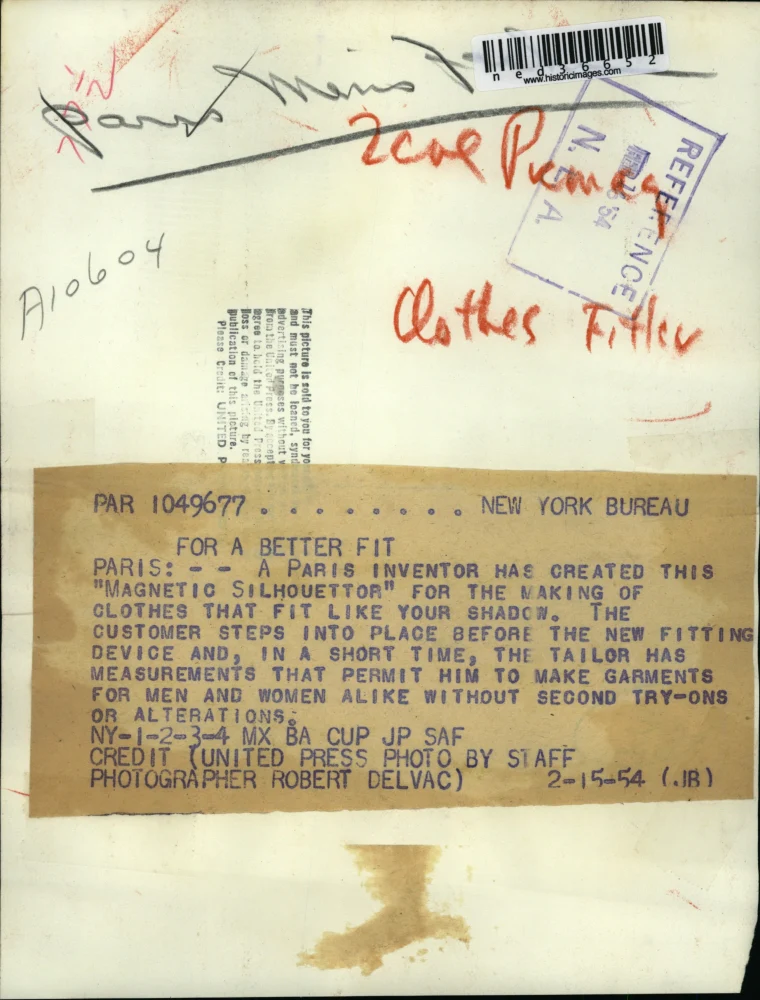 ned36652
www.historicimages.com
Paris Mens
2 col
Clothes Fitter
REFERENCE
N. E. A.
A10604
This picture is sold to you for yo
and must not be loaned, synd
advertising purposes without w
from the United Press. By accept
agree to hold the United Press
loss or damage arising by rea
publication of this picture.
Please Credit: UNITED P
PAR 1049677 . . . . . . . . . NEW YORK BUREAU
FOR A BETTER FIT
PARIS: - - A PARIS INVENTOR HAS CREATED THIS
"MAGNETIC SILHOUETTOR" FOR THE MAKING OF
CLOTHES THAT FIT LIKE YOUR SHADOW. THE
CUSTOMER STEPS INTO PLACE BEFORE THE NEW FITTING
DEVICE AND, IN A SHORT TIME, THE TAILOR HAS
MEASUREMENTS THAT PERMIT HIM TO MAKE GARMENTS
FOR MEN AND WOMEN ALIKE WITHOUT SECOND TRY-ONS
OR ALTERATIONS.
NY-1-2-3-4 MX BA CUP JP SAF
CREDIT (UNITED PRESS PHOTO BY STAFF
PHOTOGRAPHER ROBERT DELVAC) 2-15-54 (JB)